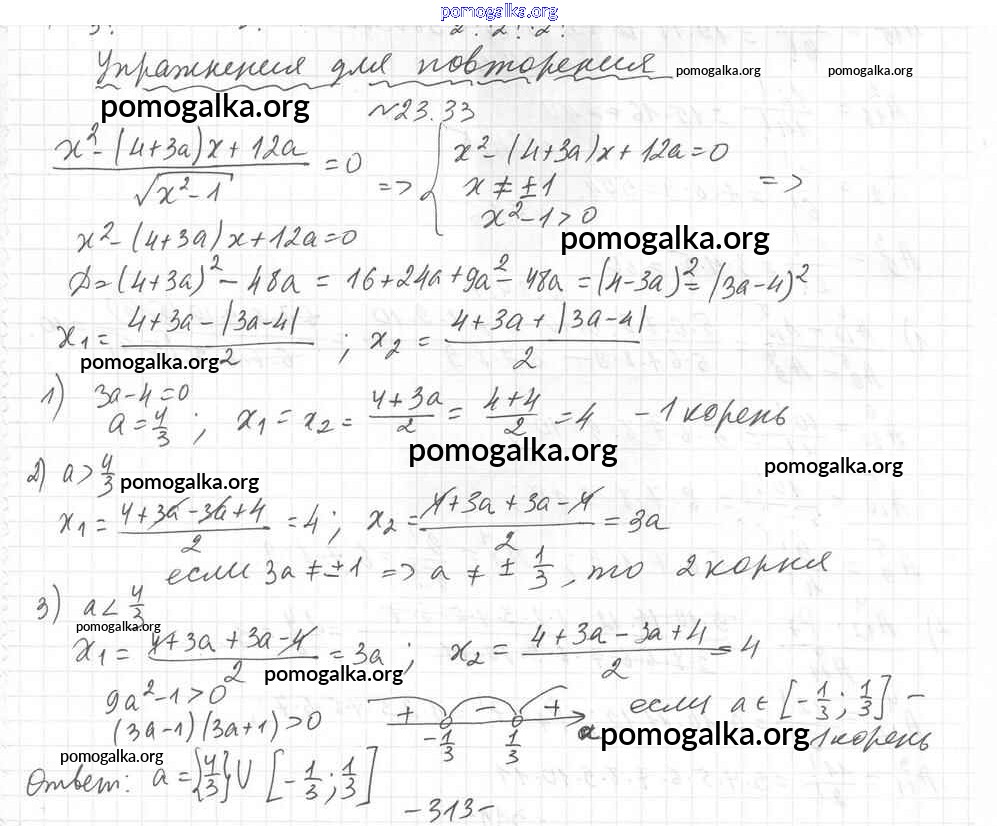 pomogalka.org
3! 2! 2! 2!
Упражнения для повторения pomogalka.org pomogalka.org
pomogalka.org №23.33
(x² - (4+3a)x + 12a) / √(x²-1) = 0 => { x² - (4+3a)x + 12a = 0
x ≠ ±1 =>
x² - 1 > 0
x² - (4+3a)x + 12a = 0 pomogalka.org
D = (4+3a)² - 48a = 16 + 24a + 9a² - 48a = (4-3a)² = (3a-4)²
x₁ = (4+3a - |3a-4|) / 2 ; x₂ = (4+3a + |3a-4|) / 2
pomogalka.org
1) 3a-4=0
a = 4/3 ; x₁ = x₂ = (4+3a)/2 = (4+4)/2 = 4 - 1 корень
pomogalka.org
2) a > 4/3 pomogalka.org pomogalka.org
x₁ = (4+3a-3a+4)/2 = 4 ; x₂ = (4+3a+3a-4)/2 = 3a
если 3a ≠ ±1 => a ≠ ± 1/3 , то 2 корня
3) a < 4/3
pomogalka.org
x₁ = (4+3a+3a-4)/2 = 3a ; x₂ = (4+3a-3a+4)/2 = 4
pomogalka.org
9a² - 1 > 0
(3a-1)(3a+1) > 0 + - + -1/3 1/3 a если a ∈ [-1/3 ; 1/3] -
pomogalka.org 1 корень
pomogalka.org
Ответ: a = {4/3} ∪ [-1/3 ; 1/3]
-313-